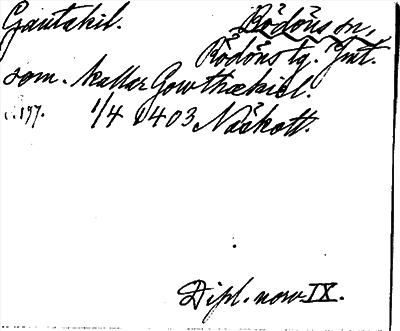 Gautakil. Rödöns sn,
Rödöns tg. Jmt.
som. kallar Gowthækiel.
s. 197. 1/4 1403 Näskott.
Dipl. norv. IX.